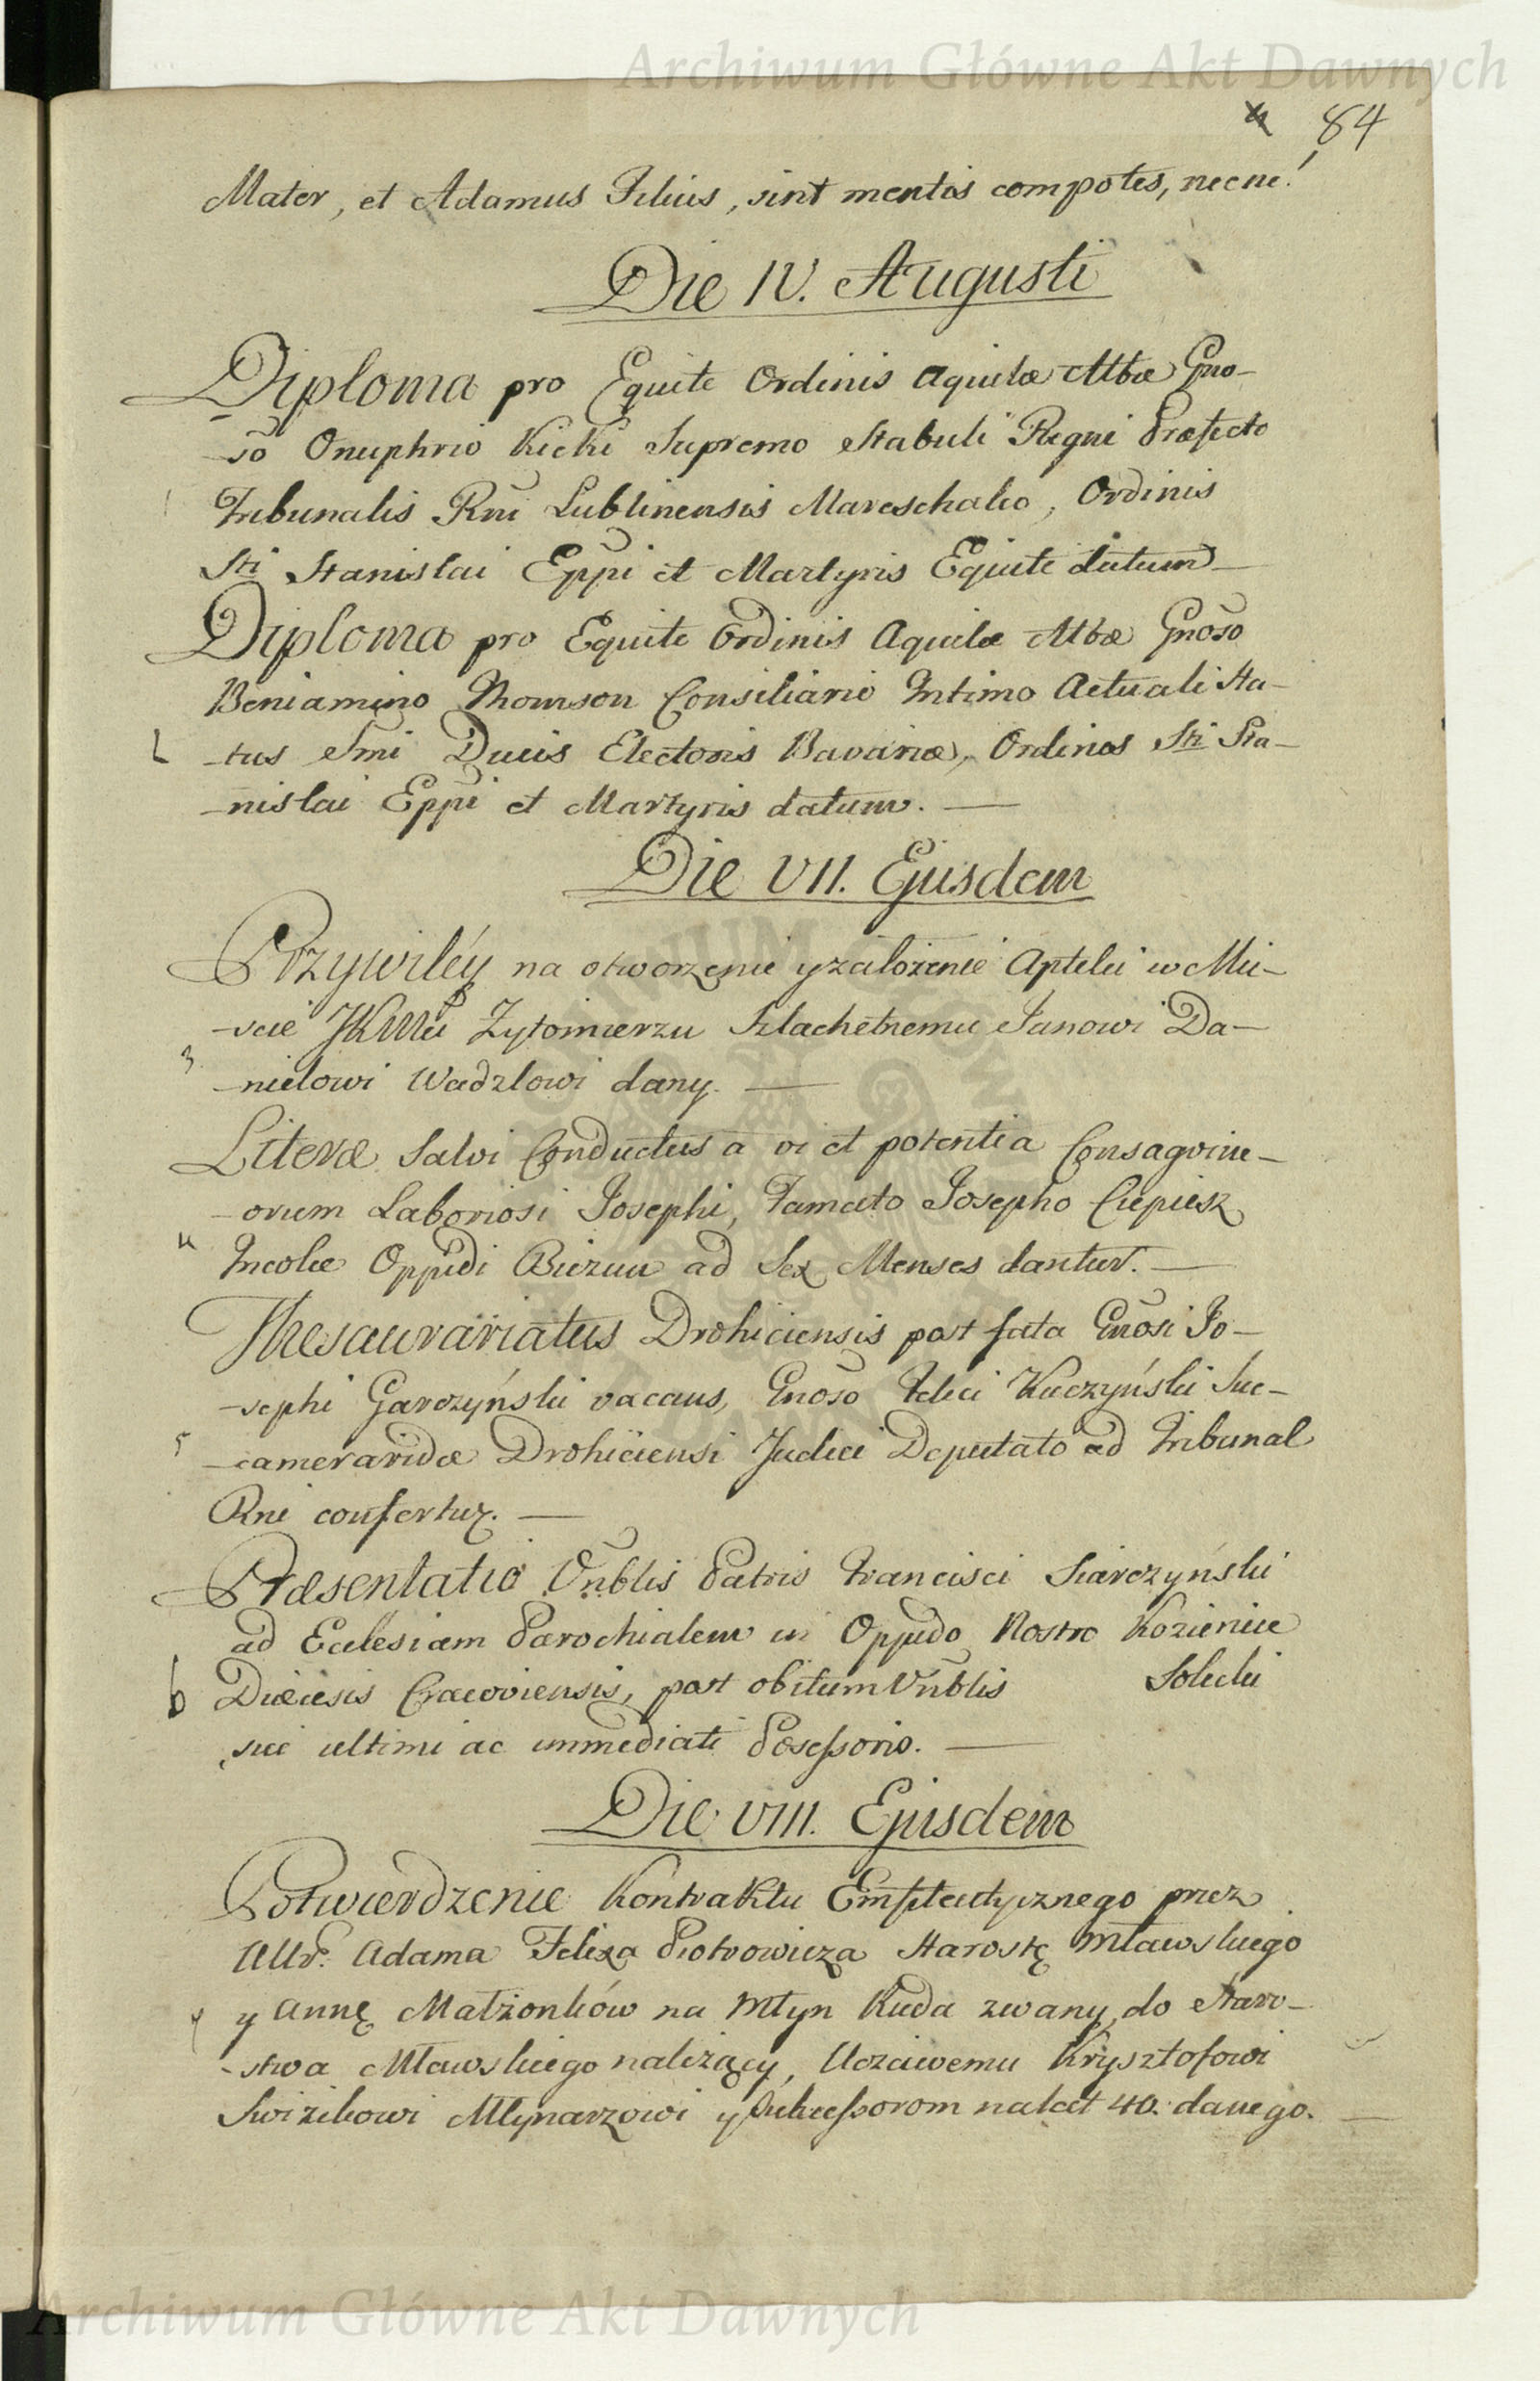 Archiwum Główne Akt Dawnych
84
Mater, et Adamus Filius, sint mentis compotes, necne!
Die IV. Augusti
Diploma pro Equite Ordinis Aquilæ Albæ Gno-
-so Onuphrio Kicki Supremo Stabuli Regni Præfecto
1 Tribunalis Rni Lublinensis Mareschalco, Ordinis
Sti Stanislai Eppi et Martyris Equite datum —
Diploma pro Equite Ordinis Aquilæ Albæ Gnoso
Beniamino Thomson Consiliario Intimo Actuali Sta-
2 -tus Smi Ducis Electoris Bavariæ, Ordinis Sti Sta-
-nislai Eppi et Martyris datum. —
Die VII. Ejusdem
Przywiléy na otworzenie y założenie Apteki w Mie-
-scie JKMci Zytomierzu Szlachetnemu Janowi Da-
3 -nielowi Wadzlowi dany. —
Literæ Salvi Conductus a vi et potentia Consagvine-
-orum Laboriosi Josephi, Famato Josepho Ciepiesz
4 Incolæ Oppidi Biezun ad Sex Menses dantur. —
Thesaurariatus Drohiciensis post fata Gnosi Jo-
-sephi Garczyński vacans, Gnoso Felici Kuczyński Suc-
5 -cameraridæ Drohiciensi Judici Deputato ad Tribunal
Rni confertur. —
Præsentatio Vnblis Patris Francisci Siarczyński
ad Ecclesiam Parochialem in Oppido Nostro Kozienice
6 Diæcesis Cracoviensis, post obitum Vnblis Solecki
sui ultimi ac immediati Possessoris. —
Die VIII. Ejusdem
Potwierdzenie Kontraktu Emfiteutycznego przez
Ur. Adama Felixa Piotrowicza Starostę Mławskiego
y Annę Małżonków na Młyn Ruda zwany, do Staro-
-stwa Mławskiego należący, Uczciwemu Krysztofowi
Swizikowi Młynarzowi y Sukcessorom na lat 40. danego. —
Archiwum Główne Akt Dawnych